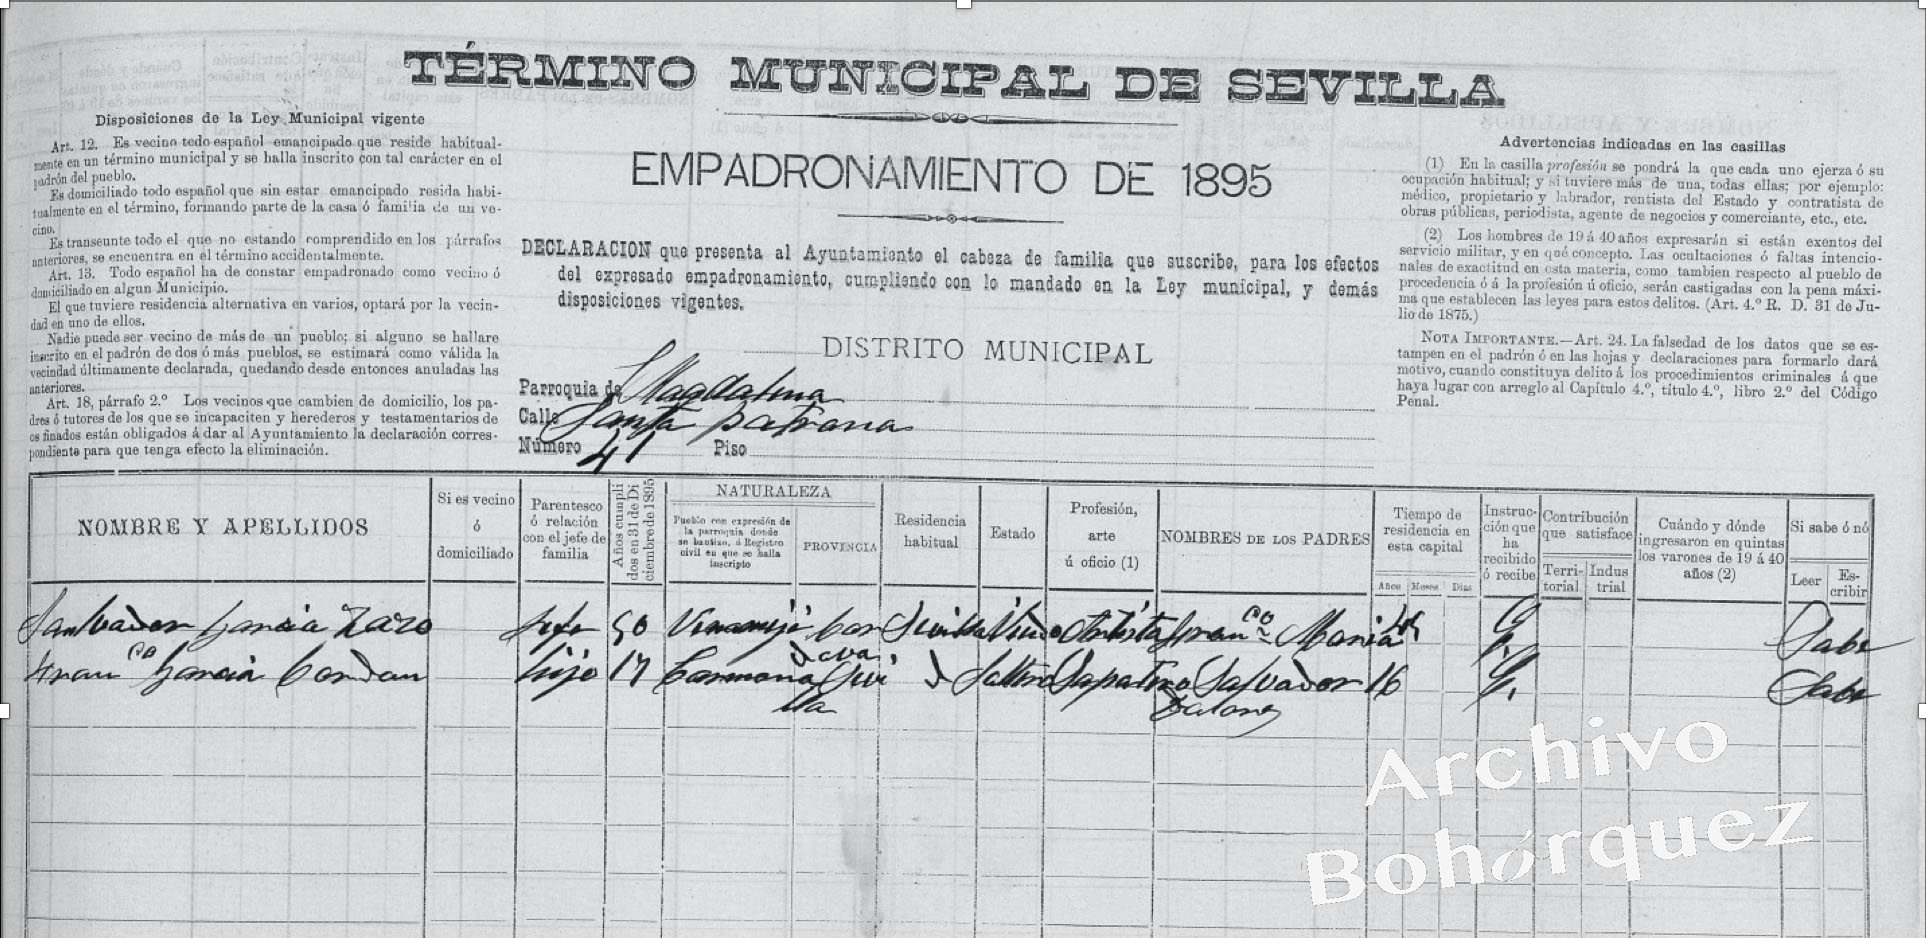 TÉRMINO MUNICIPAL DE SEVILLA
EMPADRONAMIENTO DE 1895
Disposiciones de la Ley Municipal vigente
Art. 12. Es vecino todo español emancipado que reside habitual-
mente en un término municipal y se halla inscrito con tal carácter en el
padrón del pueblo.
Es domiciliado todo español que sin estar emancipado resida habi-
tualmente en el término, formando parte de la casa ó familia de un ve-
cino.
Es transeunte todo el que no estando comprendido en los párrafos
anteriores, se encuentra en el término accidentalmente.
Art. 13. Todo español ha de constar empadronado como vecino ó
domiciliado en algun Municipio.
El que tuviere residencia alternativa en varios, optará por la vecin-
dad en uno de ellos.
Nadie puede ser vecino de más de un pueblo; si alguno se hallare
inscrito en el padrón de dos ó más pueblos, se estimará como válida la
vecindad últimamente declarada, quedando desde entonces anuladas las
anteriores.
Art. 18, párrafo 2.º Los vecinos que cambien de domicilio, los pa-
dres ó tutores de los que se incapaciten y herederos y testamentarios de
os finados están obligados á dar al Ayuntamiento la declaración corres-
pondiente para que tenga efecto la eliminación.
DECLARACION que presenta al Ayuntamiento el cabeza de familia que suscribe, para los efectos
del expresado empadronamiento, cumpliendo con lo mandado en la Ley municipal, y demás
disposiciones vigentes.
DISTRITO MUNICIPAL
Parroquia de Magdalena
Calle Santa patrona
Número 41 Piso
Advertencias indicadas en las casillas
(1) En la casilla profesión se pondrá la que cada uno ejerza ó su
ocupación habitual; y si tuviere más de una, todas ellas; por ejemplo:
médico, propietario y labrador, rentista del Estado y contratista de
obras públicas, periodista, agente de negocios y comerciante, etc., etc.
(2) Los hombres de 19 á 40 años expresarán si están exentos del
servicio militar, y en qué concepto. Las ocultaciones ó faltas intencio-
nales de exactitud en esta materia, como tambien respecto al pueblo de
procedencia ó á la profesión ú oficio, serán castigadas con la pena máxi-
ma que establecen las leyes para estos delitos. (Art. 4.º R. D. 31 de Ju-
lio de 1875.)
NOTA IMPORTANTE.—Art. 24. La falsedad de los datos que se es-
tampen en el padrón ó en las hojas y declaraciones para formarlo dará
motivo, cuando constituya delito á los procedimientos criminales á que
haya lugar con arreglo al Capítulo 4.º, título 4.º, libro 2.º del Código
Penal.
NOMBRE Y APELLIDOS
Si es vecino
ó
domiciliado
Parentesco
ó relación
con el jefe de
familia
Años cumpli
dos en 31 de Di
ciembre de 1895
NATURALEZA
Pueblo con expresión de
la parroquia donde
se bautizo, ó Registro
civil en que se halla
inscripto
PROVINCIA
Residencia
habitual
Estado
Profesión,
arte
ú oficio (1)
NOMBRES DE LOS PADRES
Tiempo de
residencia en
esta capital
Años Meses Dias
Instruc-
ción que
ha
recibido
ó recibe
Contribución
que satisface
Terri-
torial
Indus
trial
Cuándo y dónde
ingresaron en quintas
los varones de 19 á 40
años (2)
Si sabe ó nó
Leer
Es-
cribir
Salvador Garcia Zazo Jefe 50 Cor Sevilla Viudo Artista Fran.co Maria Sabe
dova
Fran.co Garcia hijo 17 Carmona Sevi Soltero Sapatero Salvador 16 Sabe
lla Dolores
Archivo
Bohórquez